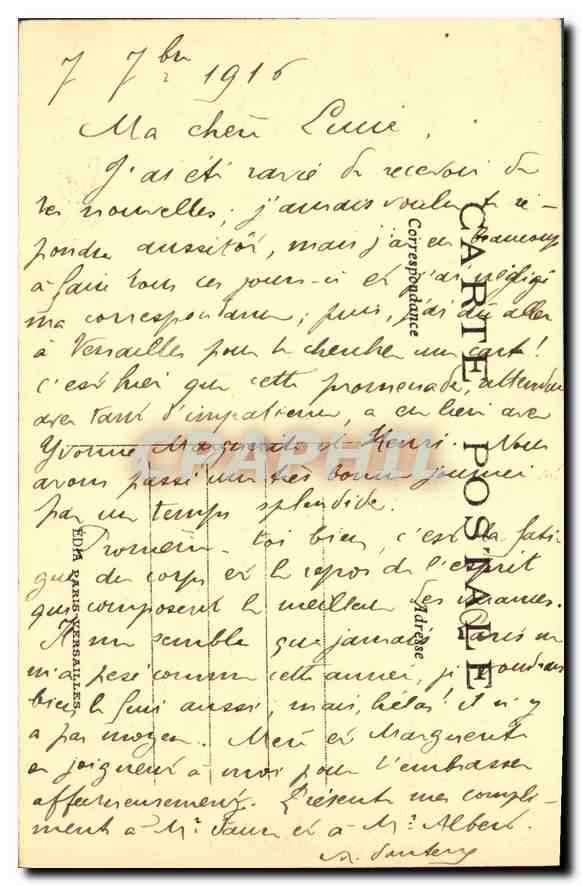 7 7bre 1916
Ma chère Lucie,
J'ai été ravie de recevoir de
tes nouvelles; j'aurais voulu te ré-
pondre aussitôt, mais j'ai eu beaucoup
à faire tous ces jours-ci et j'ai négligé
ma correspondance; puis, j'ai dû aller
à Versailles pour te chercher une carte!
c'est hier que cette promenade, attendue
avec tant d'impatience, a eu lieu avec
Yvonne, Marguerite et Henri. Nous
avons passé une très bonne journée
par un temps splendide.
Promène-toi bien, c'est la fati-
gue du corps et le repos de l'esprit
qui composent les meilleures vacances.
Il me semble que jamais Paris ne
m'a pesé comme cette année, je voudrais
bien le fuir aussi, mais, hélas! il n'y
a pas moyen. Mère et Marguerite
se joignent à moi pour t'embrasser
affectueusement. Présente mes compli-
ments à Mr. et à Mr. Albert.
CARTE POSTALE
Correspondance
Adresse
EDIA PARIS-VERSAILLES
CPAPHIL